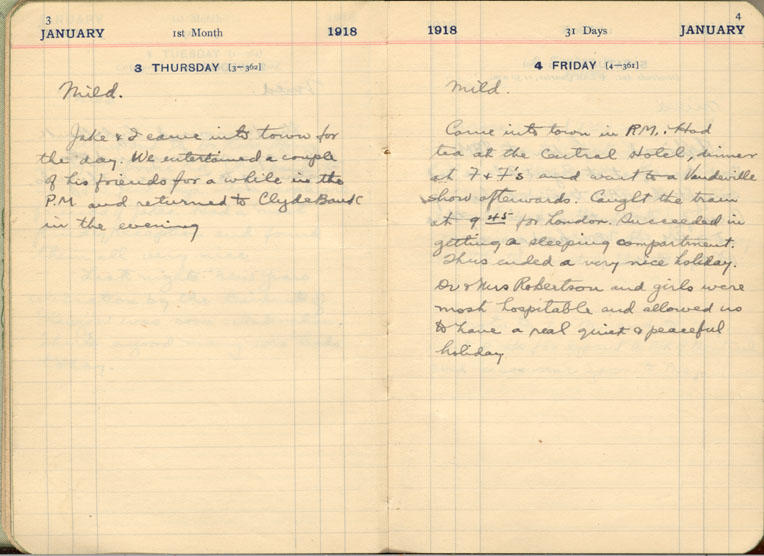 3
JANUARY 1st Month 1918
3 THURSDAY [3—362]
Mild.
Jake & I came into town for
the day. We entertained a couple
of his friends for a while in the
P.M and returned to ClydeBank
in the evening
4
1918 31 Days JANUARY
4 FRIDAY [4—361]
Mild.
Came into town in P.M. Had
tea at the Central Hotel, dinner
at F & F's and went to a Vaudeville
show afterwards. Caught the train
at 9 45 for London. Succeeded in
getting a sleeping compartment.
Thus ended a very nice holiday.
Dr & Mrs Robertson and girls were
most hospitable and allowed us
to have a real quiet & peaceful
holiday